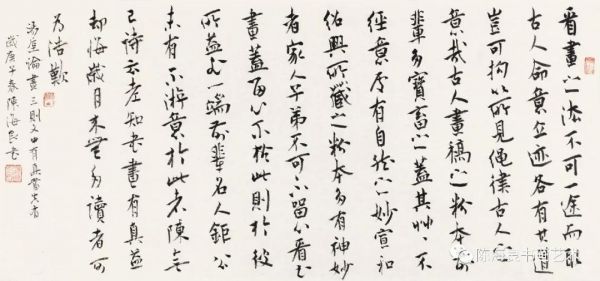 看畫之法不可一途而取
古人命意立迹各有其道
豈可拘以所見繩律古人之
意哉古人畫稿之粉本前
輩多寶畜之蓋其草々不
經意處有自然之妙宣和
紹興所藏之粉本多有神妙
者家人子弟不可不留心看書
畫蓋留心於此則於彼
所益非一端前輩名人鉅公
未有不游意於此者陳無
己詩云老知書畫有真益
却悔歲月來無多讀者可
為浩歎
湯垕論畫三則文中有真
歲庚子春陳海良書
陈海良书画艺术